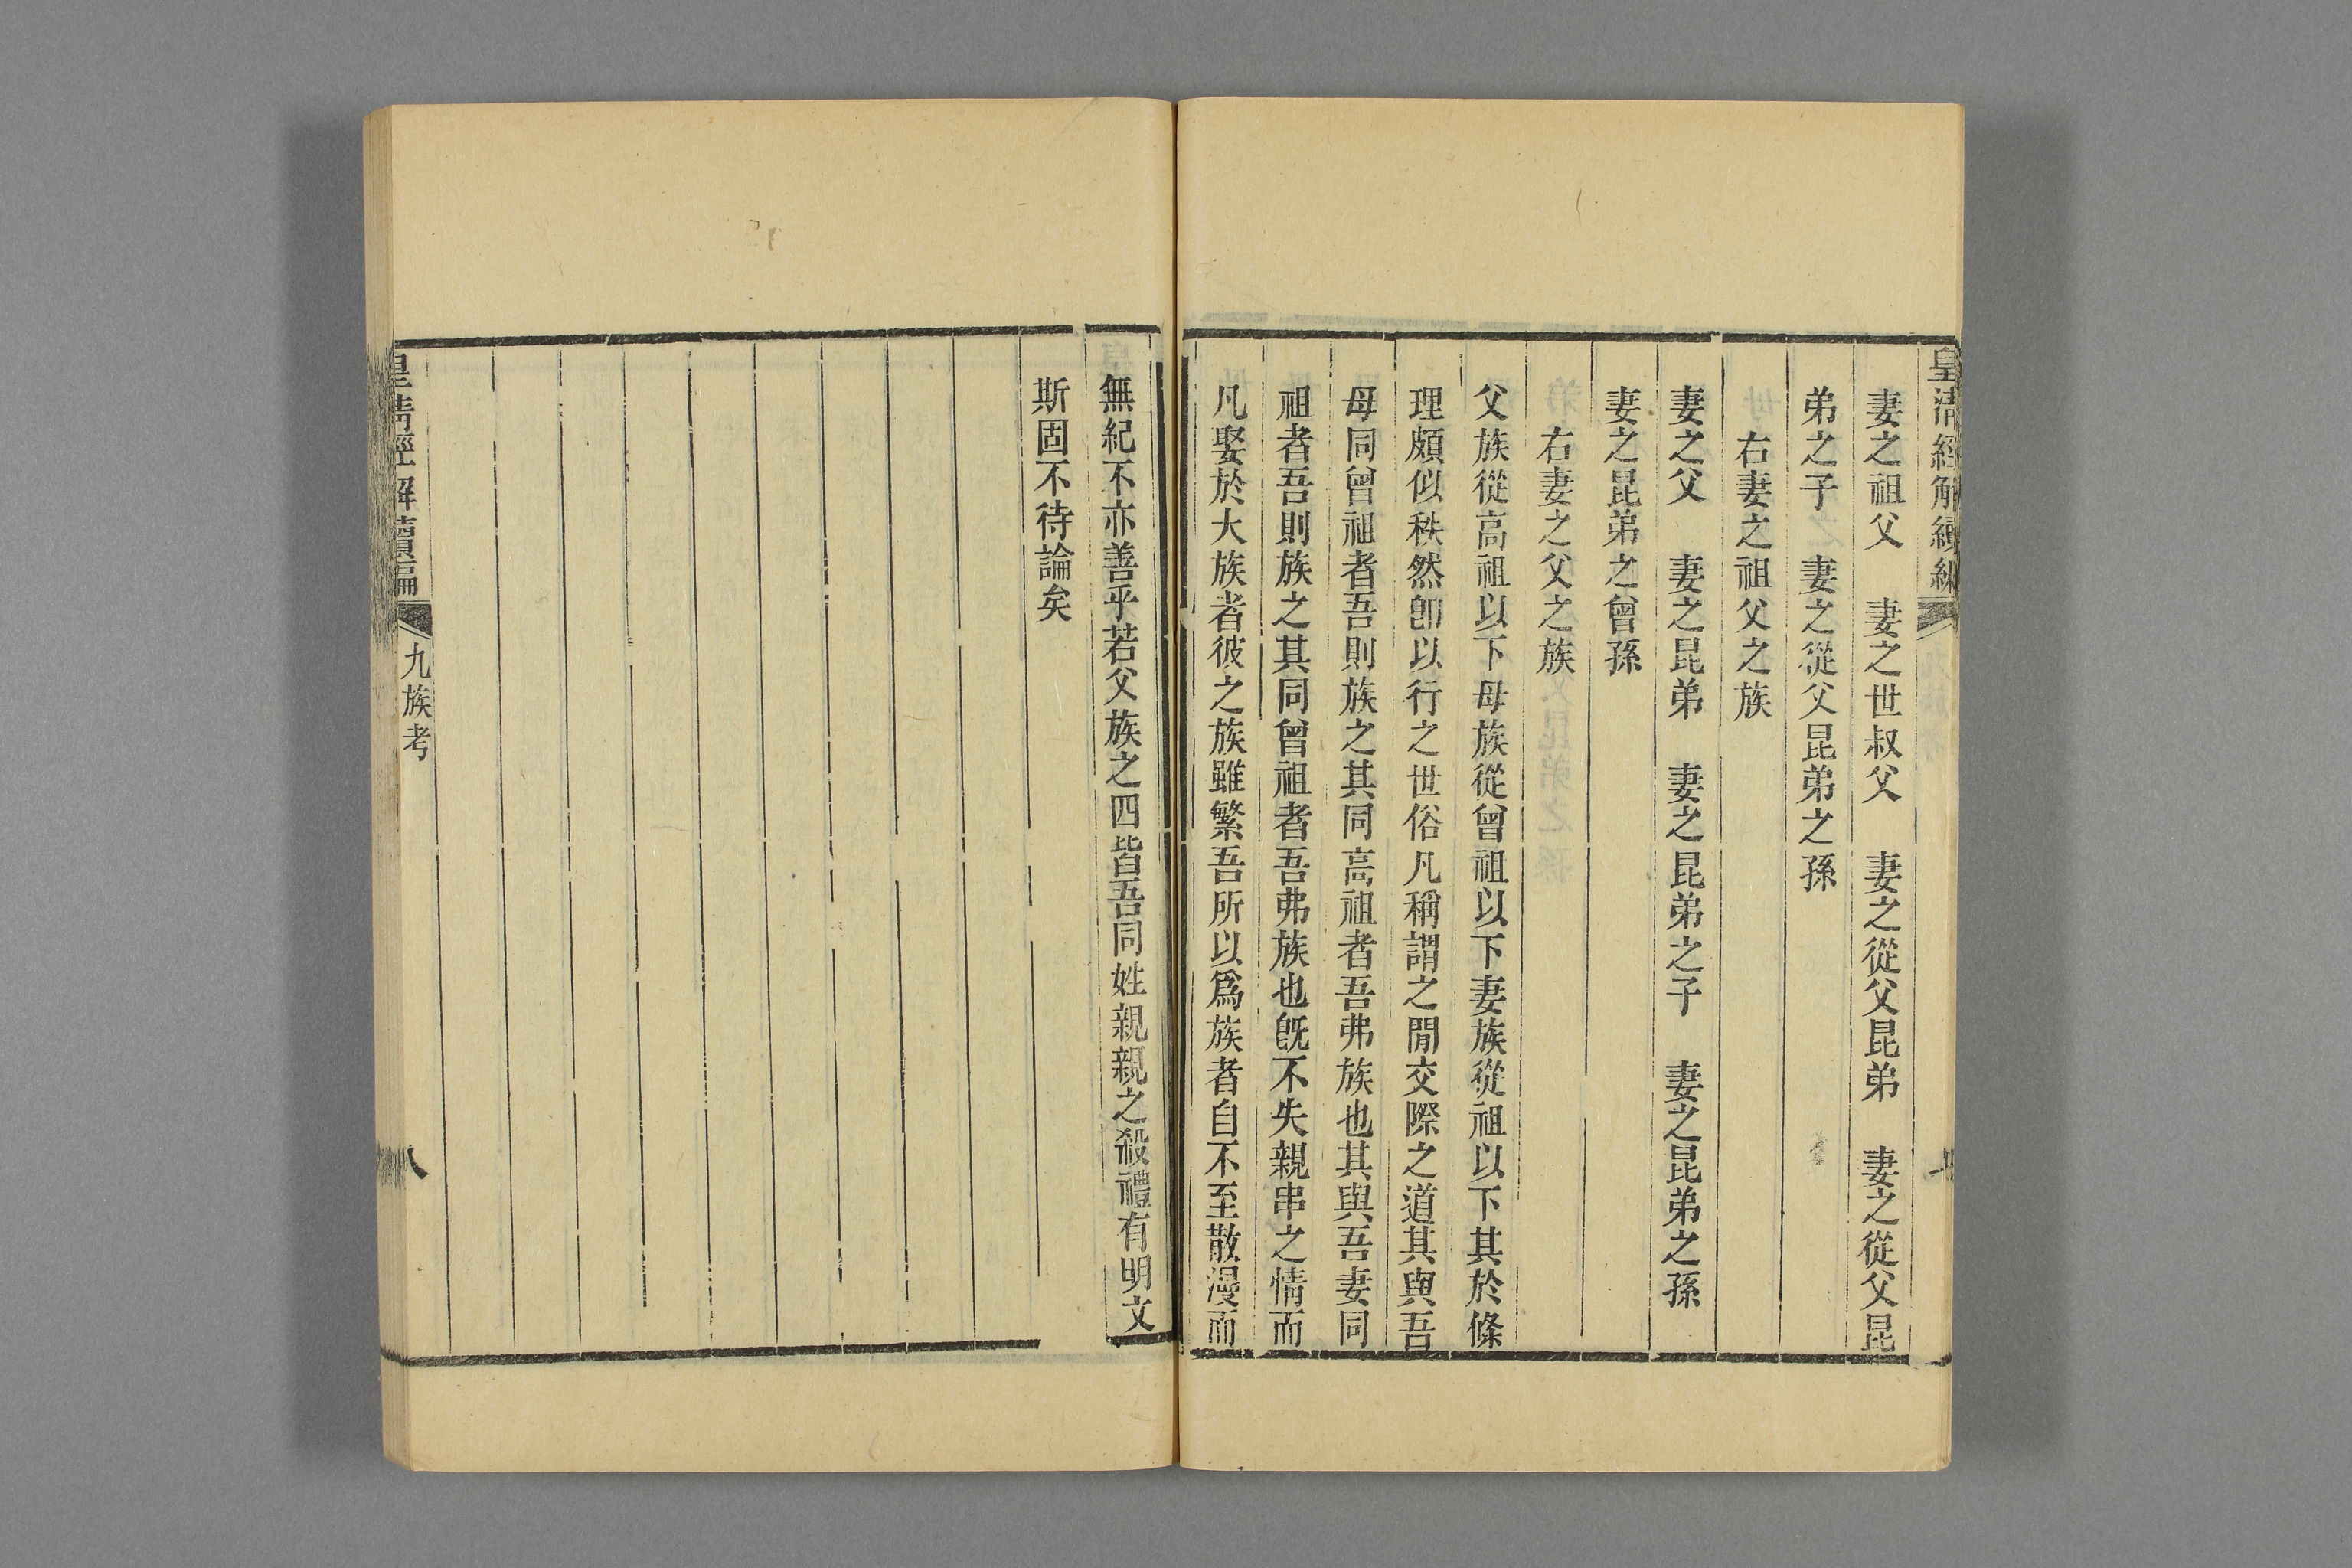 皇清經解續編
妻之祖父　妻之世叔父　妻之從父昆弟　妻之從父昆
弟之子　妻之從父昆弟之孫
右妻之祖父之族
妻之父　妻之昆弟　妻之昆弟之子　妻之昆弟之孫
妻之昆弟之曾孫
右妻之父之族
父族從高祖以下母族從曾祖以下妻族從祖以下其於條
理頗似秩然卽以行之世俗凡稱謂之閒交際之道其與吾
母同曾祖者吾則族之其同高祖者吾弗族也其與吾妻同
祖者吾則族之其同曾祖者吾弗族也旣不失親串之情而
凡娶於大族者彼之族雖繁吾所以爲族者自不至散漫而
無紀不亦善乎若父族之四皆吾同姓親親之殺禮有明文
斯固不待論矣
皇清經解續編　九族考　八